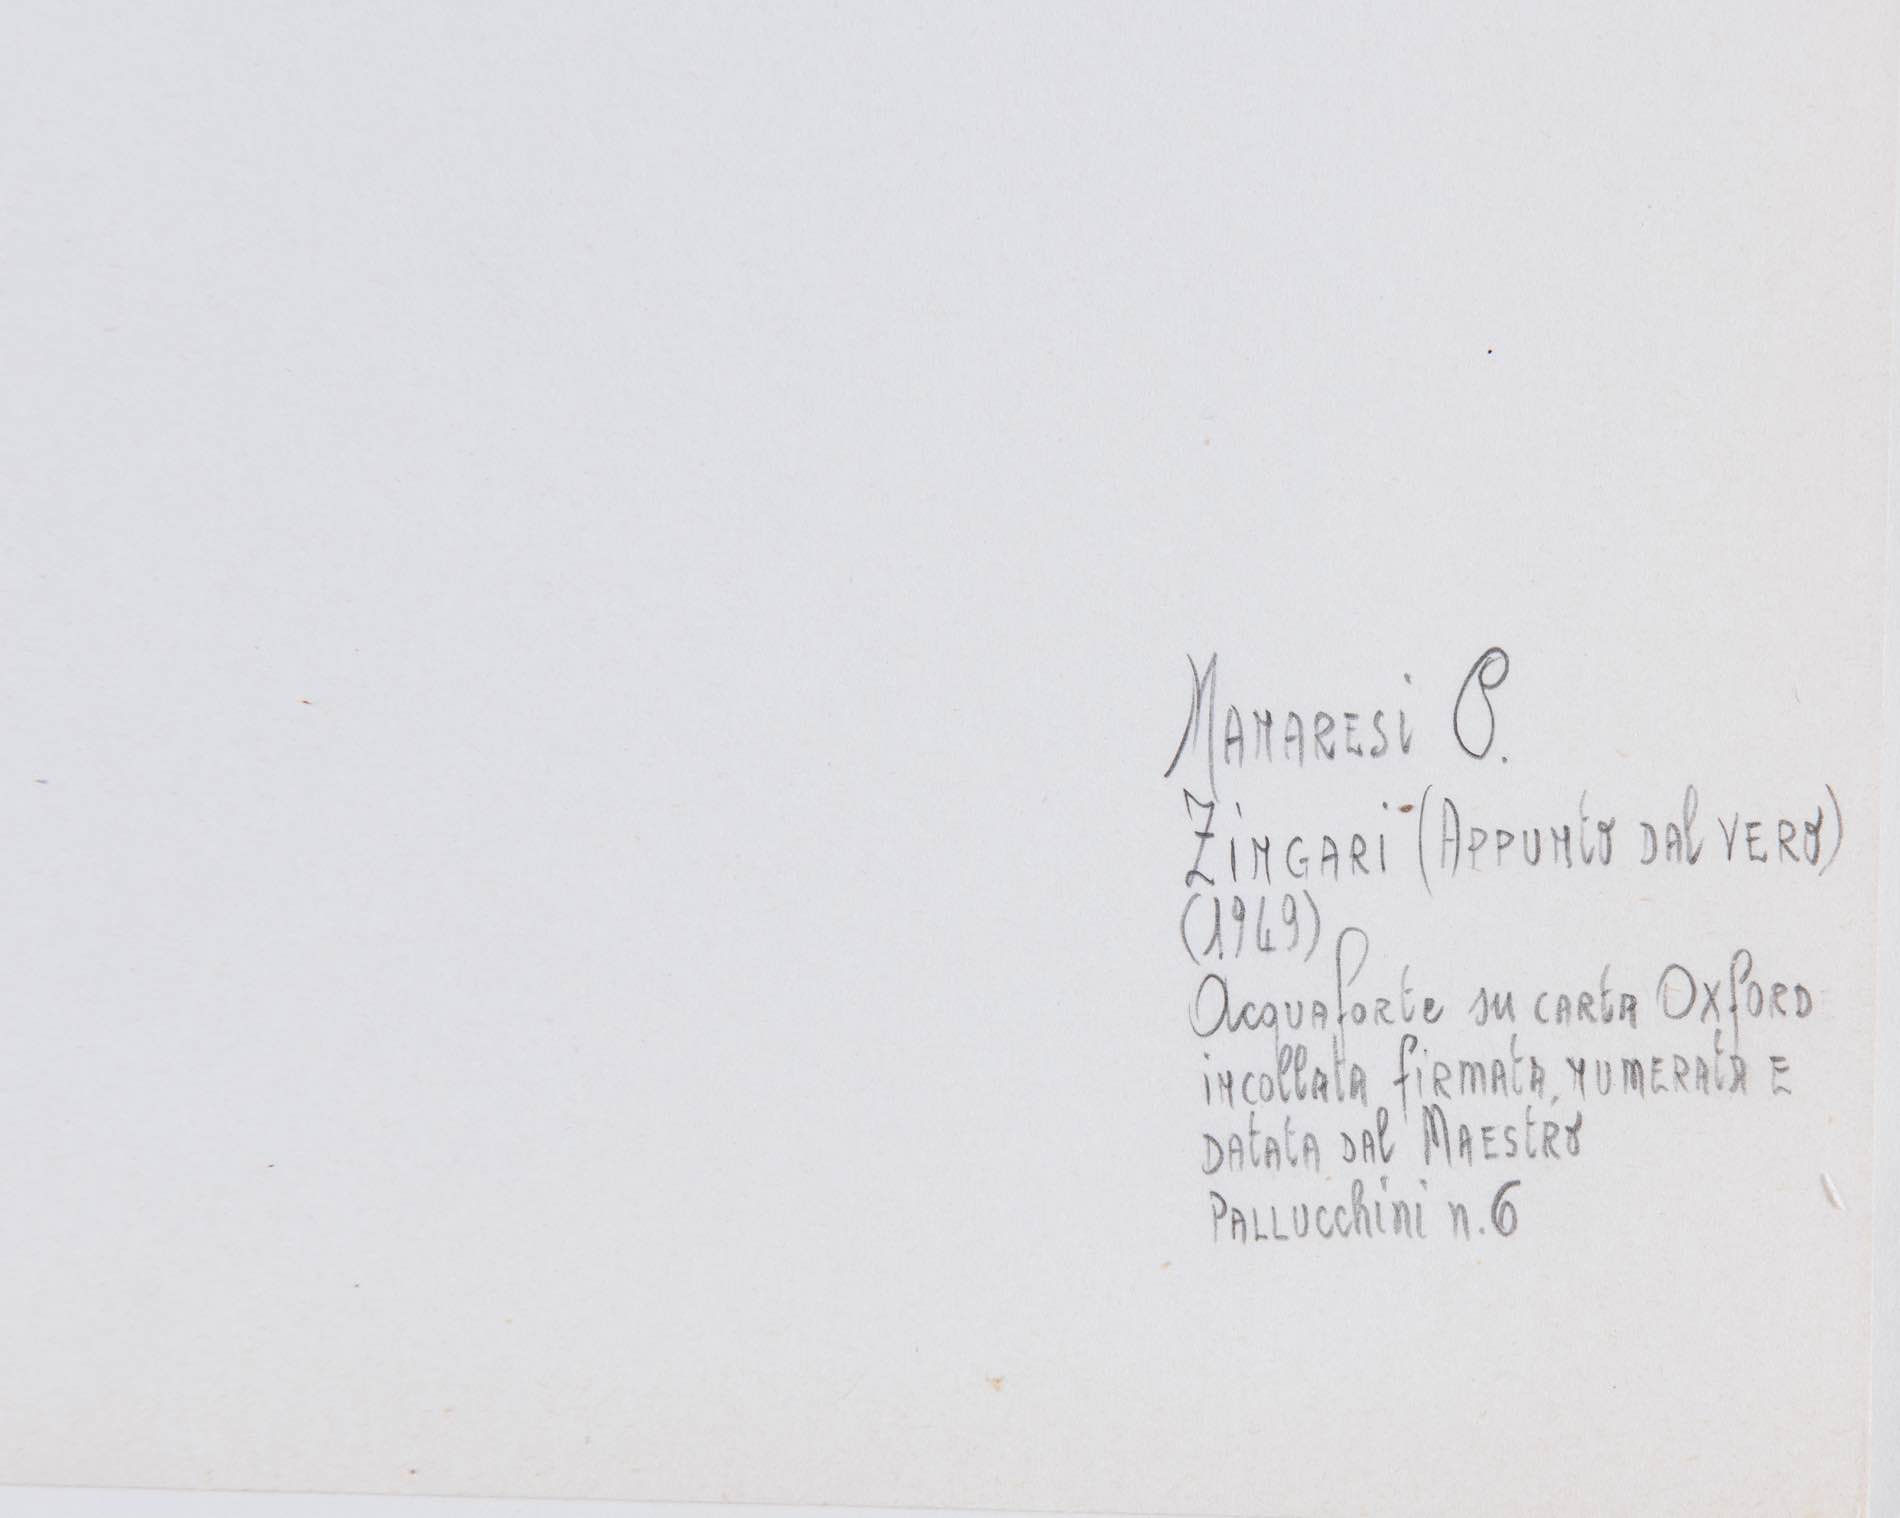 Manaresi P.
Zingari (Appunto dal vero)
(1949)
Acquaforte su carta Oxford
incollata firmata, numerata e
datata dal Maestro
Pallucchini n. 6